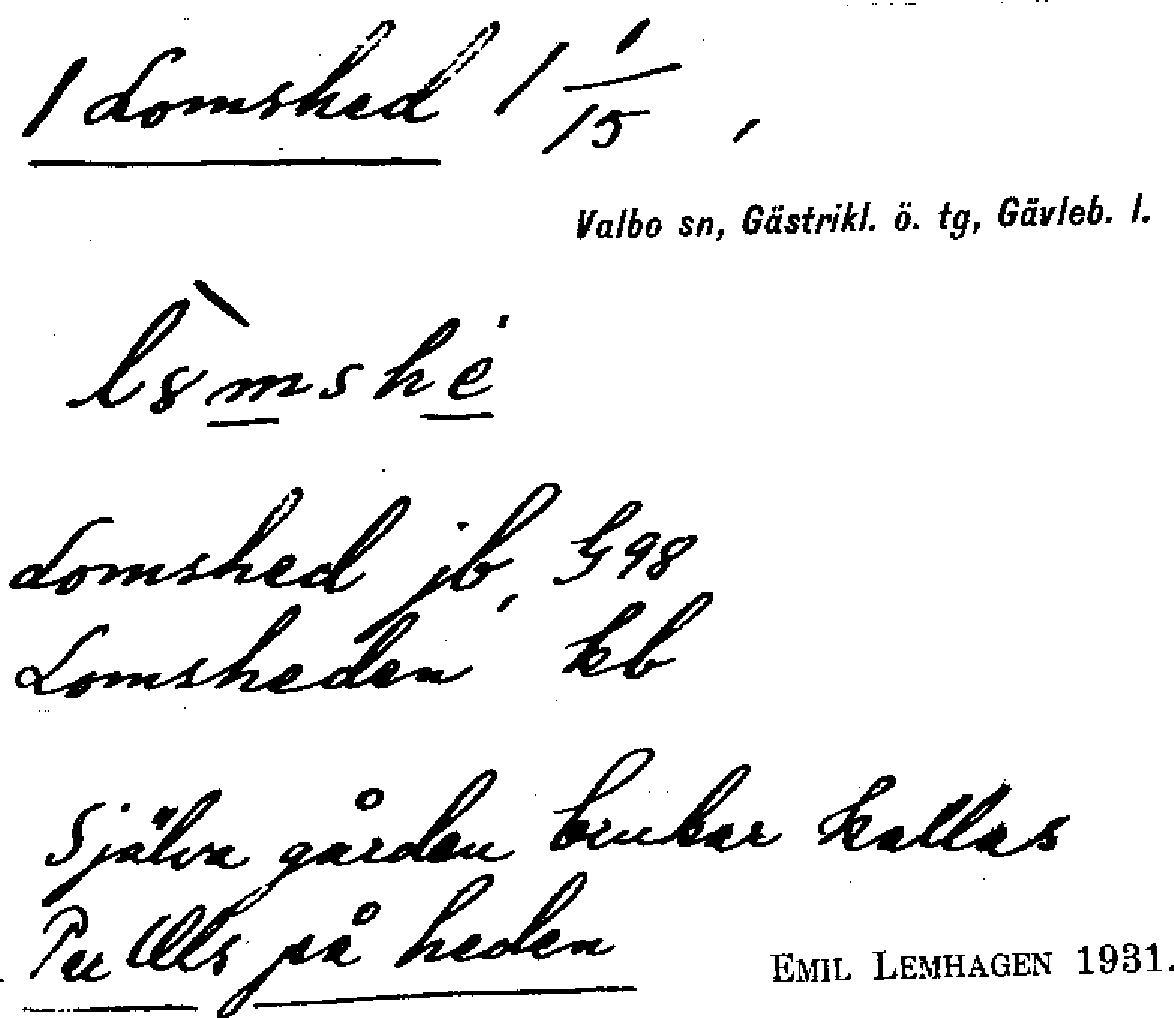 1 Lomshed 1 1/15,
Valbo sn, Gästrikl. ö. tg, Gävleb. l.
Lomshed jb, G98
Lomsheden kb
Själva gården brukar kallas
Per Ols på heden
EMIL LEMHAGEN 1931.